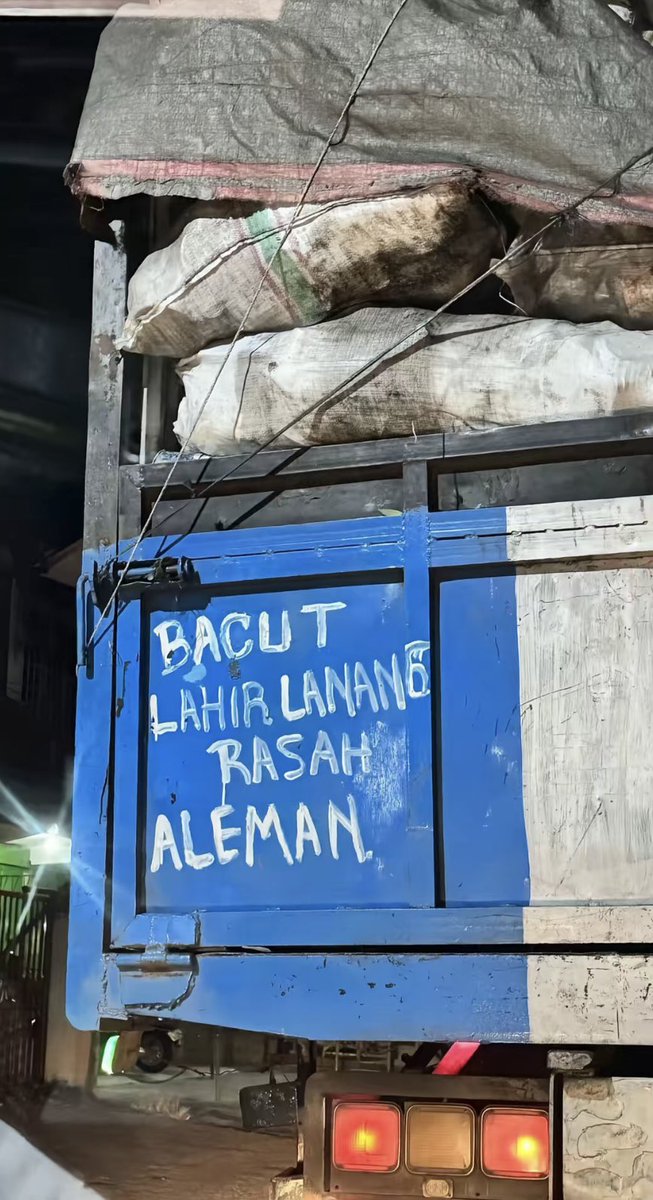 BACUT
LAHIR LANANG
RASAH
ALEMAN.